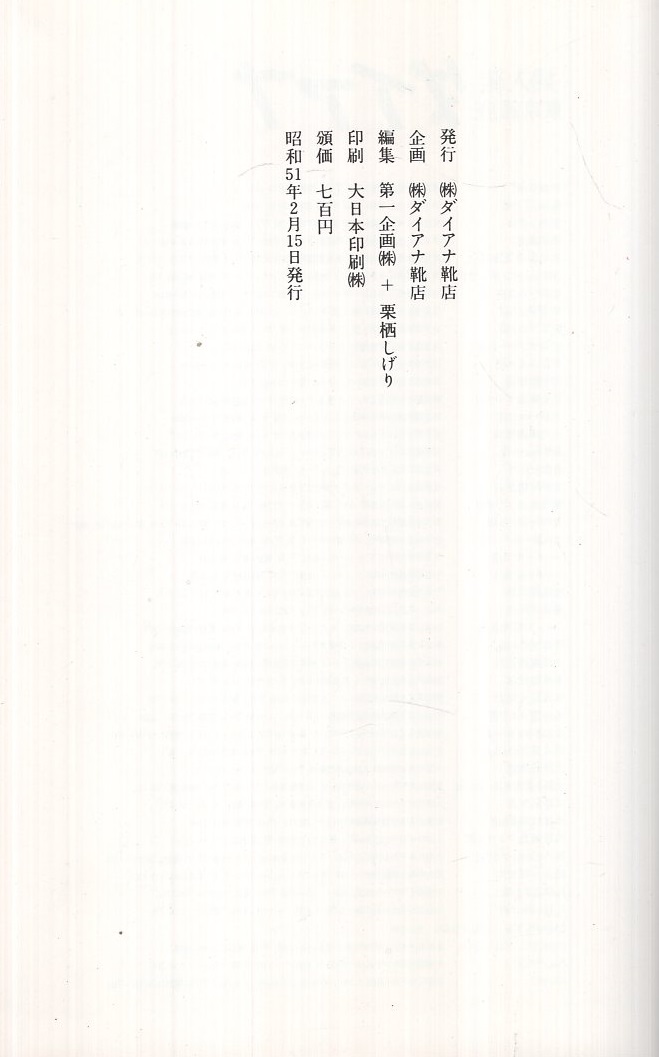 発行　㈱ダイアナ靴店
企画　㈱ダイアナ靴店
編集　第一企画㈱ + 栗栖しげり
印刷　大日本印刷㈱
頒価　七百円
昭和51年2月15日発行